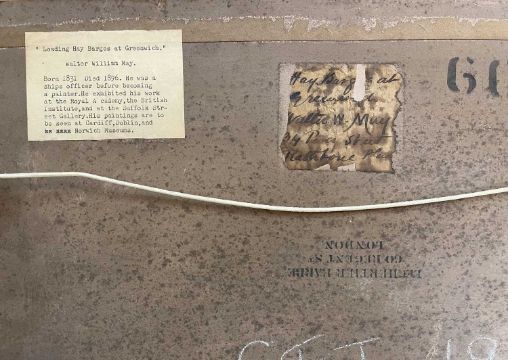 "Loading Hay Barges at Greenwich."
Walter William May.
Born 1831 Died 1896. He was a
ships officer before becoming
a painter. He exhibited his work
at the Royal A cademy, the British
Institute, and at the Suffolk Str-
eet Gallery. His paintings are to
be seen at Cardiff, Dublin, and
Norwich Museums.
Hay Barges at
Greenwich
Walter W. May
Rathbone
60
LONDON
REGENT ST